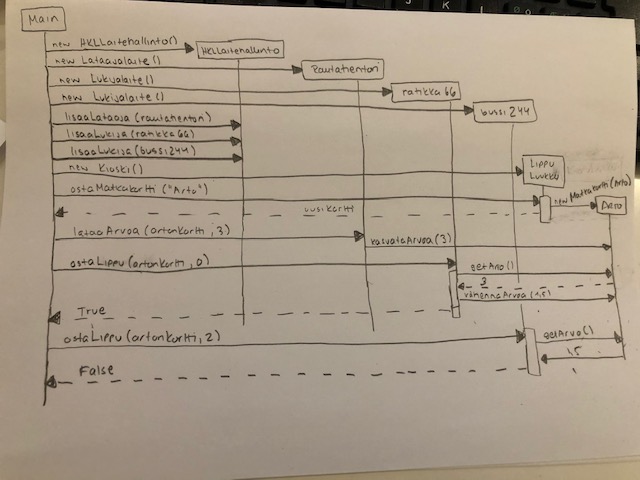 Main
new HKLLaitehallinto()
HKLLaitehallinto
new Lataajalaite()
Rautatientori
new Lukijalaite()
ratikka 66
new Lukijalaite()
bussi 244
lisaaLataaja (rautatientori)
lisaaLukija (ratikka66)
lisaaLukija (bussi244)
new Kioski()
Lippu
Luukku
ostaMatkakortti ("Arto")
new Matkakortti (Arto)
Arto
uusikortti
lataaArvoa (artonKortti, 3)
kasvataArvoa (3)
ostaLippu (artonKortti, 0)
getArvo()
3
vähennäArvoa (1,5)
True
ostaLippu (artonKortti, 2)
getArvo()
1,5
False